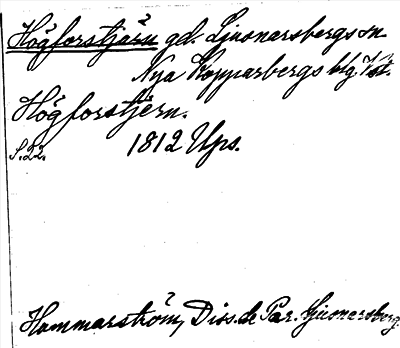 Högforstjärn gd. Ljusnarsbergs sn.
Nya Kopparbergs blg. Vstm.
Högforstjern.
S. 22. 1812 Ups.
Hammarström, Diss. de Par. Ljusnersberg.